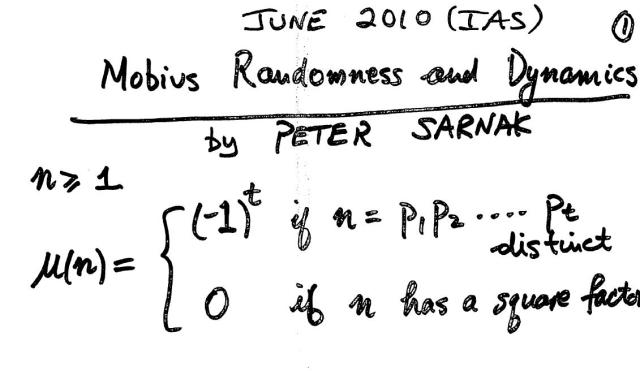 JUNE 2010 (IAS) ①
Mobius Randomness and Dynamics
by PETER SARNAK
n ⩾ 1
μ(n) = { (-1)^t if n = p₁p₂ ····· pₜ
distinct
0 if n has a square factor